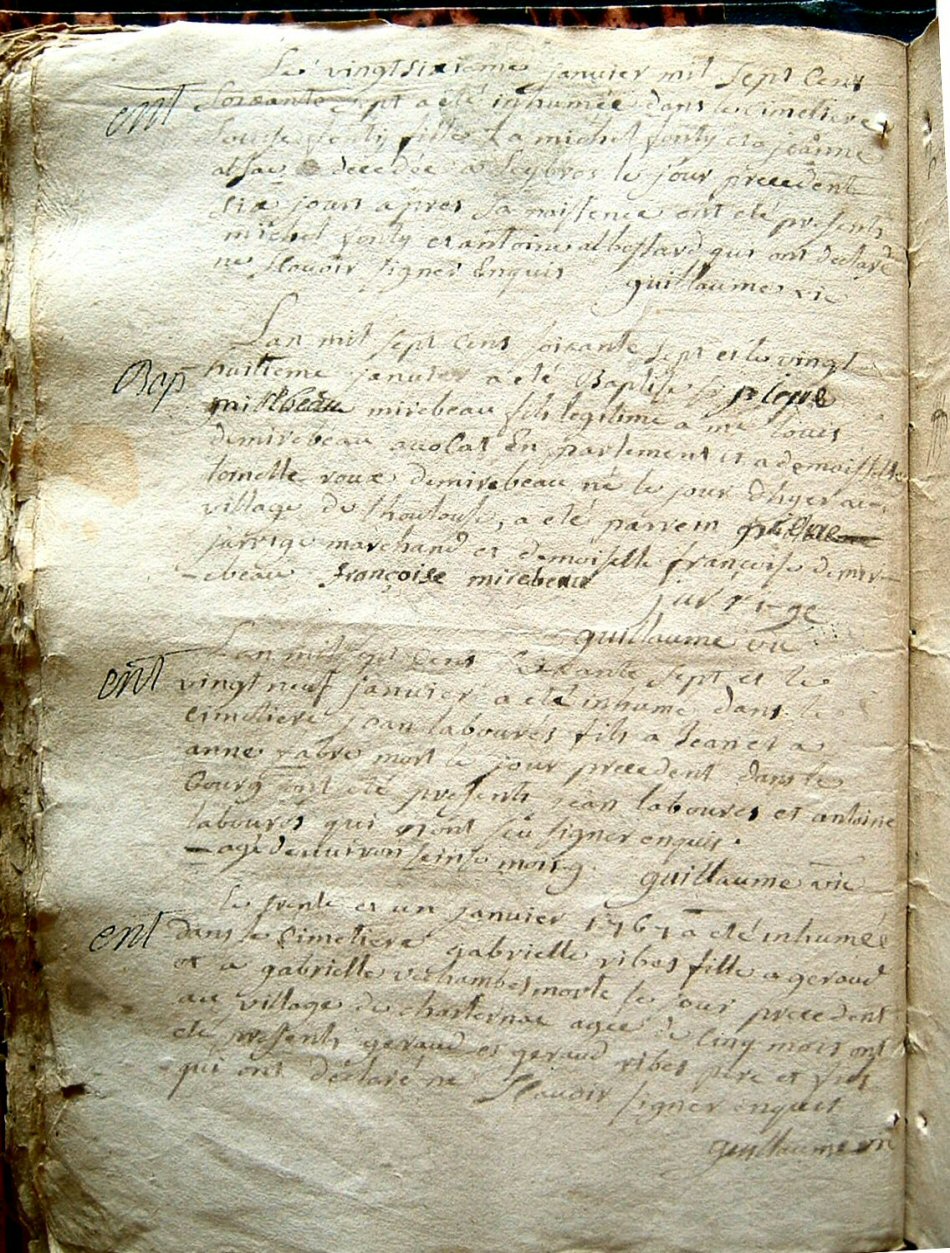 Le vingtsixieme janvier mil sept cens
ent soixante sept a été inhumée dans le cimetiere
fonty fille a michel fonty et a jeanne
decedée a le jour precedent
six jours apres sa naissence ont eté presents
michel fonty et antoine albessard qui ont declaré
ne sçavoir signer enquis guillaume vic
Lan mil sept cens soixante sept et le vingt
Bap huitieme janvier a eté Baptisé
mirebeau fils legitime a me louis
demirebeau avocat En parlement et a demoiselle
toinette roux demirebeau né le jour dhyer au
village de thoulouse, a eté parrein
jarrige marchand et demoiselle françoise demir-
ebeau françoise mirebeau
jarrige
guillaume vic
Lan mil sept cens soixante sept et le
ent vingt neuf janvier a eté inhumé dans le
cimetiere jean labourés fils a Jean et a
anne fabre mort le jour precedent dans le
bourg ont eté presents jean laboures et antoine
laboures qui n'ont sçu signer enquis.
age denviron mois guillaume vic
Le trente et un janvier 1767 a eté inhumée
ent dans le cimetiere gabrielle ribes fille a geraud
et a gabrielle vechambes morte le jour precedent
au village de agee de cinq mois ont
eté presents geraud et geraud ribes pere et fils
qui ont déclaré ne sçavoir signer enquis
guillaume vic